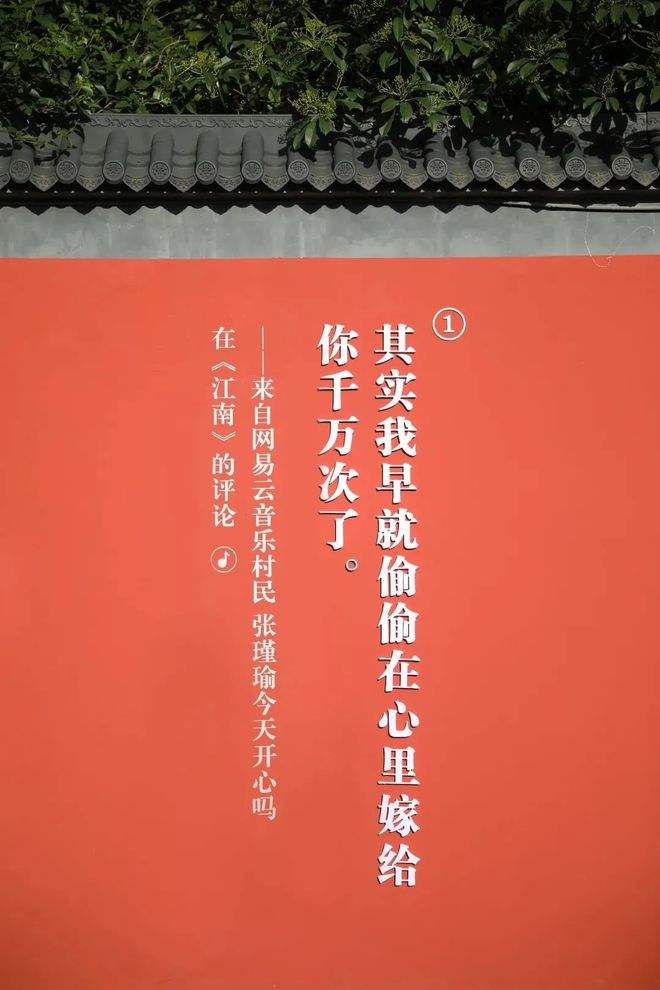 ①
其实我早就偷偷在心里嫁给
你千万次了。
——来自网易云音乐村民 张瑾瑜今天开心吗
在《江南》的评论